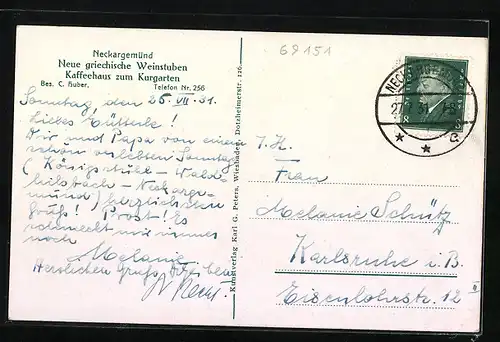 69151
Neckargemünd
Neue griechische Weinstuben
Kaffeehaus zum Kurgarten
Bes. C. Huber.    Telefon Nr. 256
Sonntag, den 26. VII. 31.
Liebes Mütterle!
Dir und Papa von einem
schön verlebten Sonntag
(Königstuhl - Wald-
hilsbach - Neckarge-
münd) herzlichsten
Gruß! Prost! Es
schmeckt mir immer
noch
Melanie
Herzlichen Gruß
Kunstverlag Karl G. Peters, Wiesbaden, Dotzheimerstr. 126.
27.7.31
8
I. H.
Frau
Melanie Schütz
Karlsruhe i. B.
Eisenlohrstr. 12 II